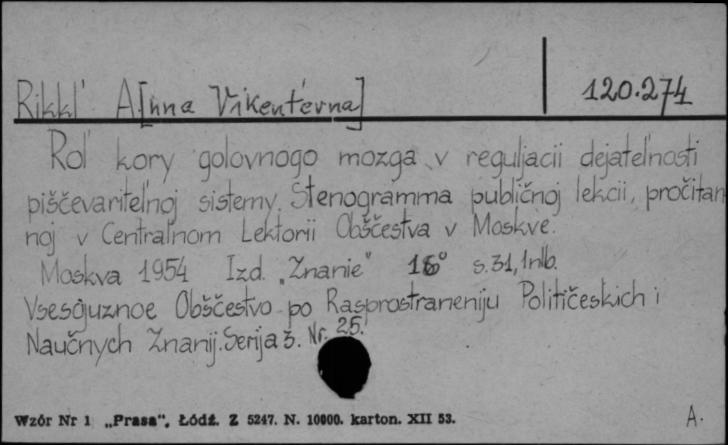 Rikkl' A[nna Vikent'evna]
120.274
Rol' kory golovnogo mozga v reguljacii dejatel'nosti
piščevaritel'noj sistemy. Stenogramma publičnoj lekcii, pročitan
noj v Central'nom Lektorii Obščestva v Moskve.
Moskva 1954 Izd. „Znanie" 16° s.31,1nlb.
Vsesojuznoe Obščestvo po Rasprostraneniju Političeskich i
Naučnych Znanij. Serija 3. Nr. 25.
Wzór Nr 1 „Prasa“, Łódź. Z 5247. N. 10000. karton. XII 53.
A.